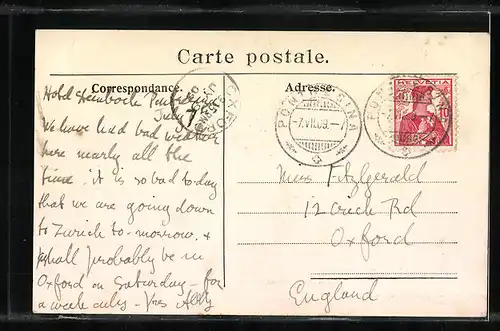 Carte postale.
Correspondance.
Adresse.
Hotel Steinbock Pontresina
July
We have had bad weather
here nearly all the
time. it is so bad to-day
that we are going down
to Zurich to-morrow, &
shall probably be in
Oxford on Saturday - for
a week only - Yrs
OXFORD
PONTRESINA
-7.VII.09.-7
PONTRESINA
HELVETIA
10
Miss Fitzgerald
12 Rd
Oxford
England